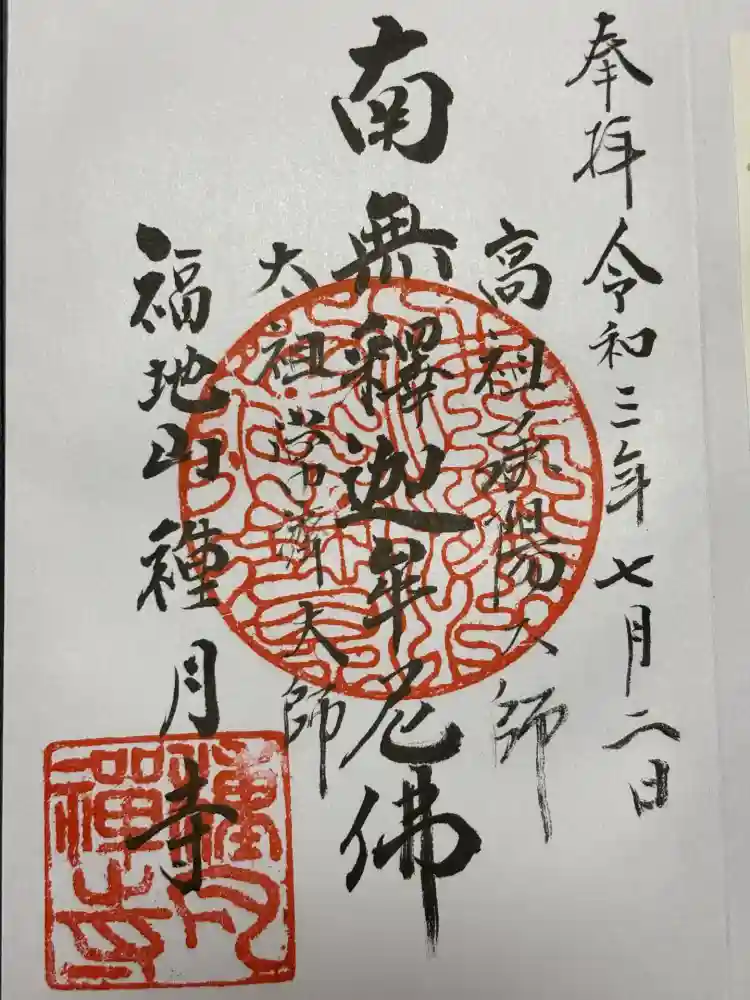 奉拝 令和三年七月二日
高祖承陽大師
南無釋迦牟尼佛
太祖常済大師
福地山 種月寺
種月
禅寺